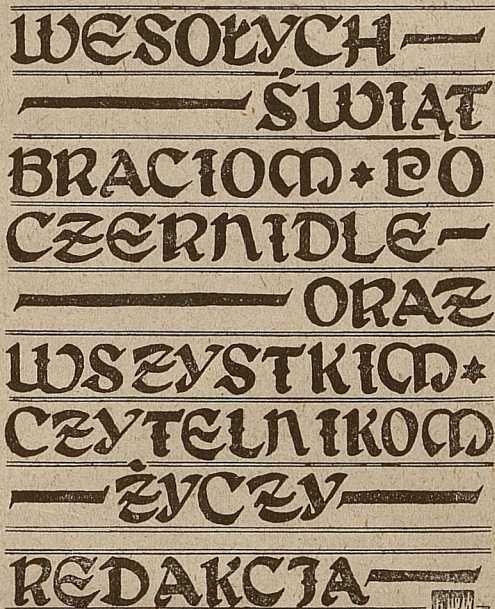 WESOŁYCH —
— ŚWIĄT
BRACIOM * PO
CZERNIDLE —
— ORAZ
WSZYSTKIM *
CZYTELNIKOM
— ŻYCZY —
REDAKCJA —